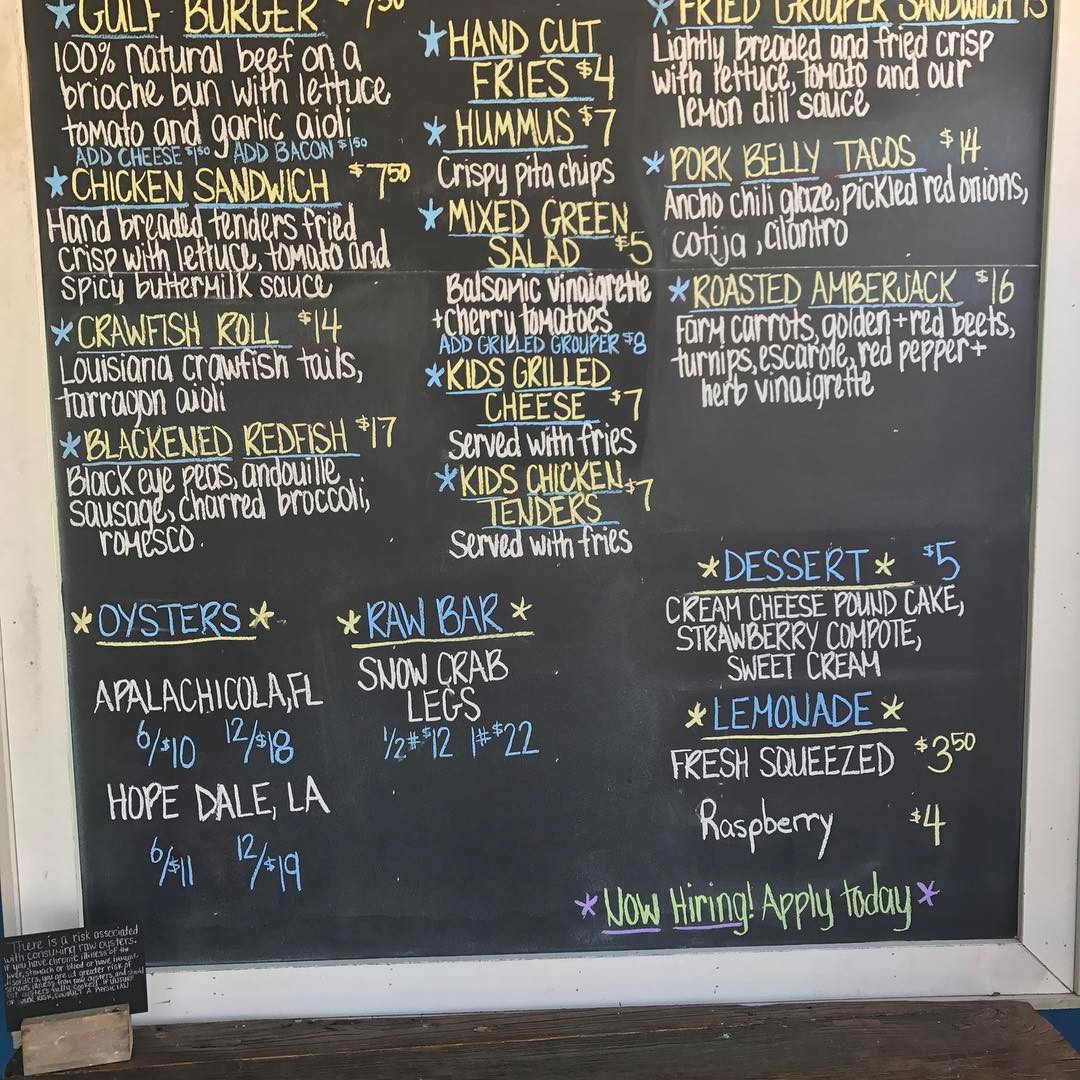 *GULF BURGER $7.50
100% natural beef on a
brioche bun with lettuce,
tomato and garlic aioli
ADD CHEESE $1.50 ADD BACON $1.50
*CHICKEN SANDWICH $7.50
Hand breaded tenders fried
crisp with lettuce, tomato and
spicy buttermilk sauce
*CRAWFISH ROLL $14
Louisiana crawfish tails,
tarragon aioli
*BLACKENED REDFISH $17
Black eye peas, andouille
sausage, charred broccoli,
romesco.
*HAND CUT
FRIES $4
*HUMMUS $7
Crispy pita chips
*MIXED GREEN
SALAD $5
Balsamic vinaigrette
+cherry tomatoes
ADD GRILLED GROUPER $8
*KIDS GRILLED
CHEESE $7
Served with fries
*KIDS CHICKEN $7
TENDERS
Served with fries
*FRIED GROUPER SANDWICH 15
Lightly breaded and fried crisp
with lettuce, tomato and our
lemon dill sauce
*PORK BELLY TACOS $14
Ancho chili glaze, pickled red onions,
cotija, cilantro
*ROASTED AMBERJACK $16
Farm carrots, golden+red beets,
turnips, escarole, red pepper+
herb vinaigrette
*OYSTERS*
APALACHICOLA, FL
6/$10 12/$18
HOPE DALE, LA
6/$11 12/$19
*RAW BAR*
SNOW CRAB
LEGS
1/2# $12 1# $22
*DESSERT* $5
CREAM CHEESE POUND CAKE,
STRAWBERRY COMPOTE,
SWEET CREAM
*LEMONADE*
FRESH SQUEEZED $3.50
Raspberry $4
*Now Hiring! Apply today*
There is a risk associated
with consuming raw oysters.
If you have chronic illness of the
liver, stomach or blood or have immune
disorders, you are at greater risk of
serious illness from raw oysters, and should
eat oysters fully cooked. If unsure
of your risk, consult a physician